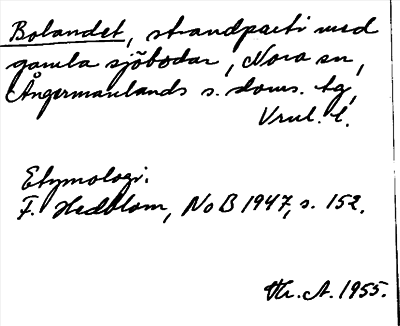 Bolandet, strandparti med
gamla sjöbodar, Nora sn,
Ångermanlands s. doms. tg,
Vnl. l.
Etymologi.
F. Hedblom, NoB 1947, s. 152.
A. 1955.